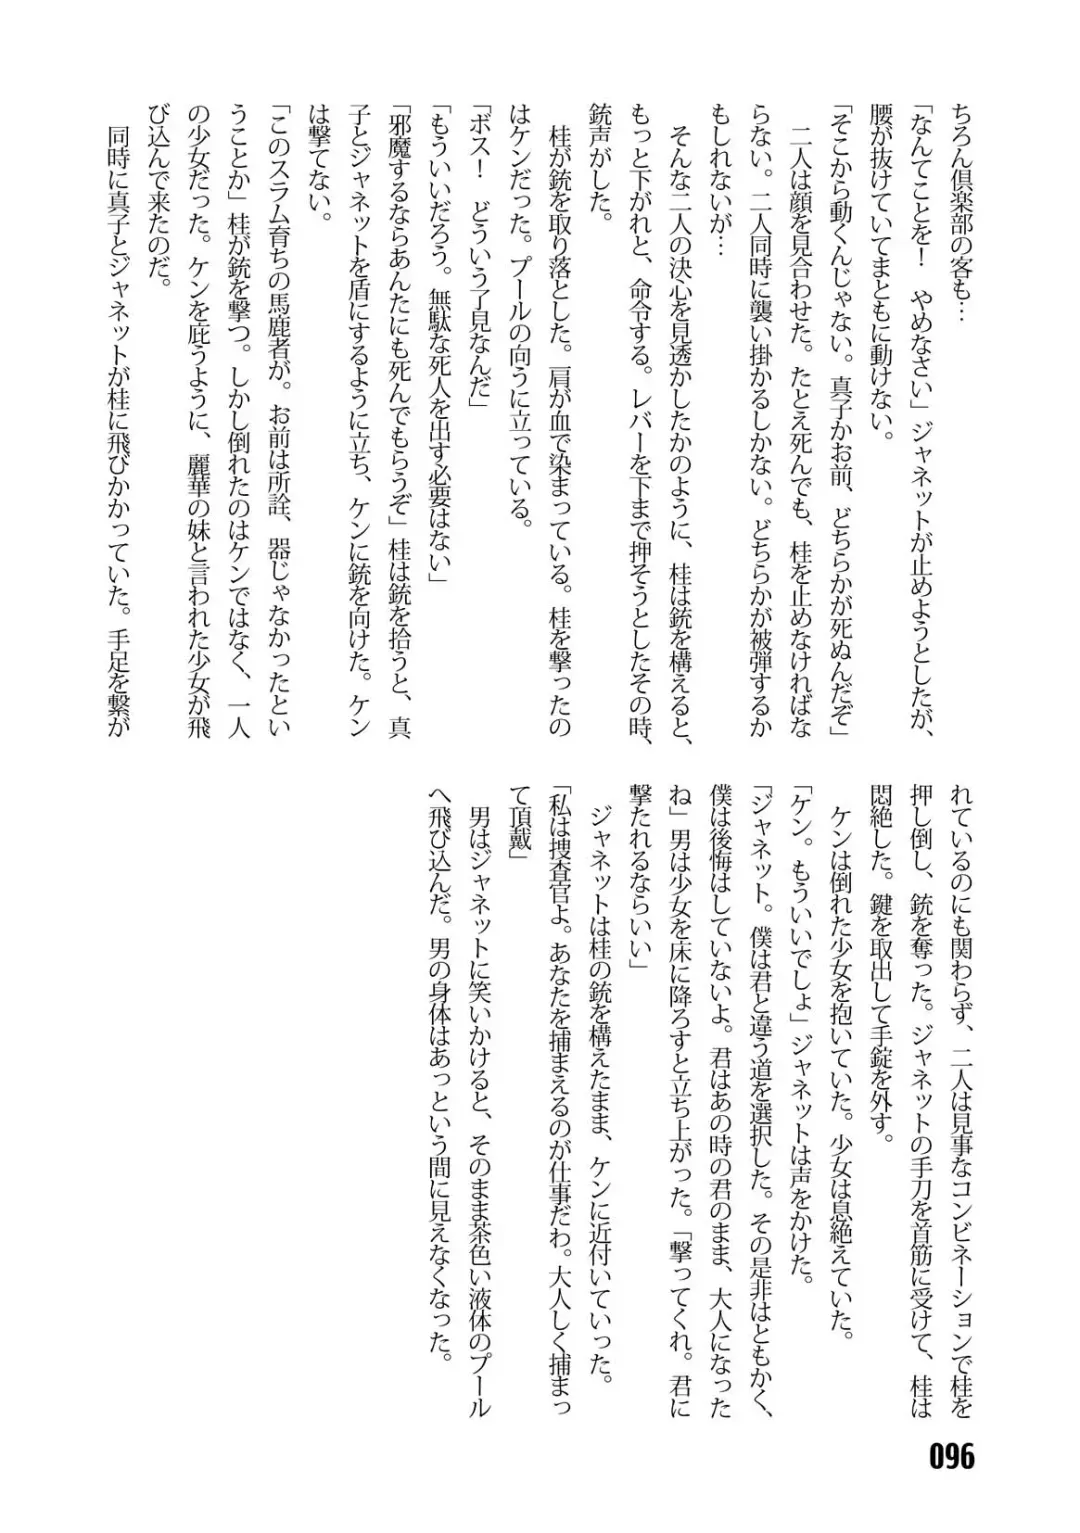 ちろん倶楽部の客も…
「なんてことを！　やめなさい」ジャネットが止めようとしたが、
腰が抜けていてまともに動けない。
「そこから動くんじゃない。真子かお前、どちらかが死ぬんだぞ」
　二人は顔を見合わせた。たとえ死んでも、桂を止めなければな
らない。二人同時に襲い掛かるしかない。どちらかが被弾するか
もしれないが…
　そんな二人の決心を見透かしたかのように、桂は銃を構えると、
もっと下がれと、命令する。レバーを下まで押そうとしたその時、
銃声がした。
　桂が銃を取り落とした。肩が血で染まっている。桂を撃ったの
はケンだった。プールの向うに立っている。
「ボス！　どういう了見なんだ」
「もういいだろう。無駄な死人を出す必要はない」
「邪魔するならあんたにも死んでもらうぞ」桂は銃を拾うと、真
子とジャネットを盾にするように立ち、ケンに銃を向けた。ケン
は撃てない。
「このスラム育ちの馬鹿者が。お前は所詮、器じゃなかったとい
うことか」桂が銃を撃つ。しかし倒れたのはケンではなく、一人
の少女だった。ケンを庇うように、麗華の妹と言われた少女が飛
び込んで来たのだ。
　同時に真子とジャネットが桂に飛びかかっていた。手足を繋が
れているのにも関わらず、二人は見事なコンビネーションで桂を
押し倒し、銃を奪った。ジャネットの手刀を首筋に受けて、桂は
悶絶した。鍵を取出して手錠を外す。
　ケンは倒れた少女を抱いていた。少女は息絶えていた。
「ケン。もういいでしょ」ジャネットは声をかけた。
「ジャネット。僕は君と違う道を選択した。その是非はともかく、
僕は後悔はしていないよ。君はあの時の君のまま、大人になった
ね」男は少女を床に降ろすと立ち上がった。「撃ってくれ。君に
撃たれるならいい」
　ジャネットは桂の銃を構えたまま、ケンに近付いていった。
「私は捜査官よ。あなたを捕まえるのが仕事だわ。大人しく捕まっ
て頂戴」
　男はジャネットに笑いかけると、そのまま茶色い液体のプール
へ飛び込んだ。男の身体はあっという間に見えなくなった。
096